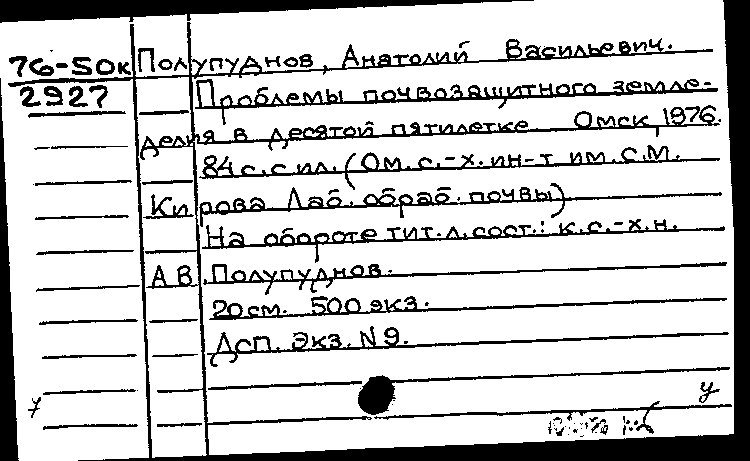 76-50к Полупуднов, Анатолий Васильевич.
2927 Проблемы почвозащитного земле-
делия в десятой пятилетке Омск, 1976.
84 с. с ил. (Ом. с.-х. ин-т им. С.М.
Кирова Лаб. обраб. почвы)
На обороте тит. л. сост.: к.с.-х.н.
А В. Полупуднов.
20 см. 500 экз.
Дсп. Экз. N 9.
у